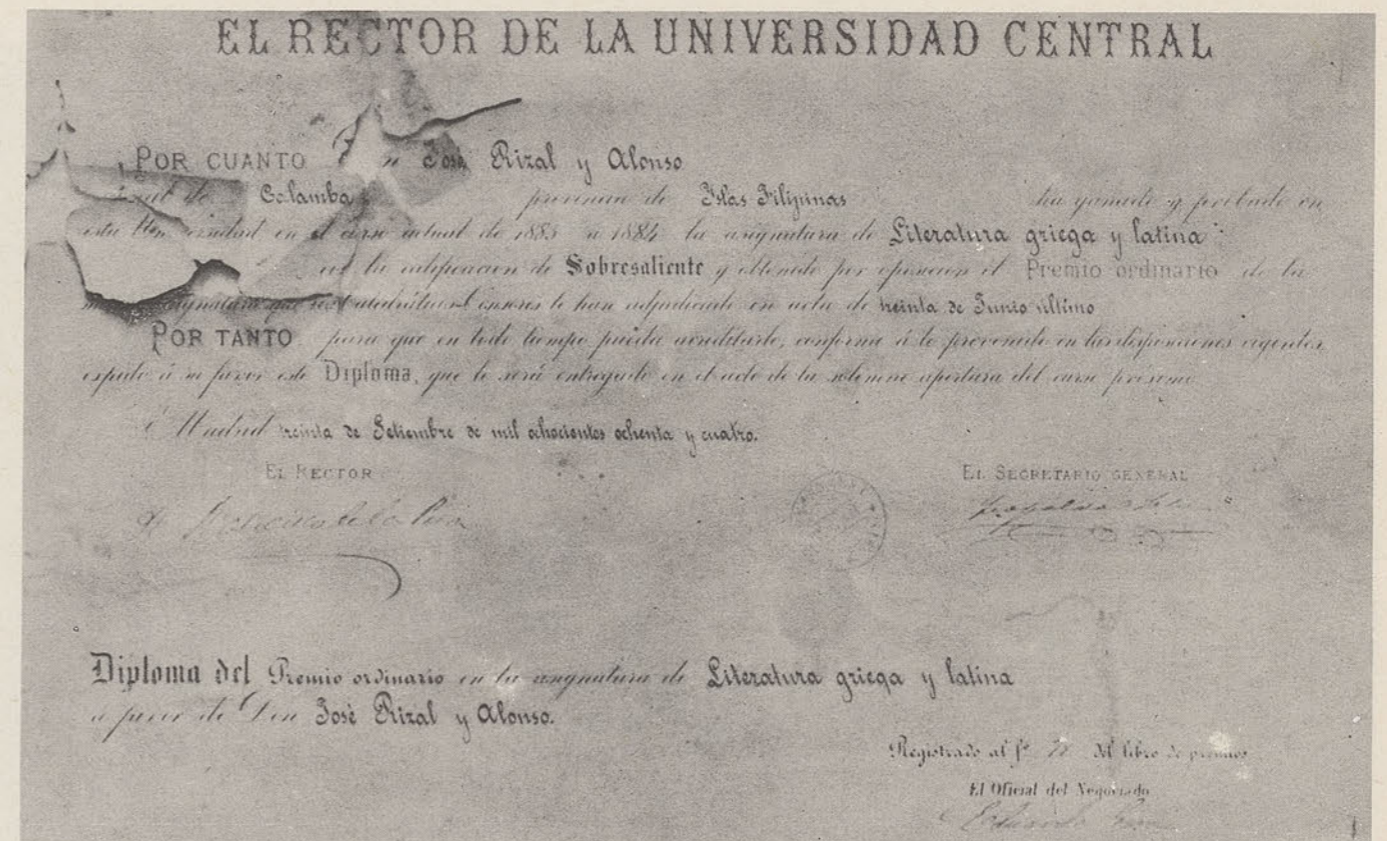 EL RECTOR DE LA UNIVERSIDAD CENTRAL
POR CUANTO José Rizal y Alonso
Calamba provincia de Islas Filipinas ha ganado y probado en
esta Universidad en el curso actual de 1883 a 1884 la asignatura de Literatura griega y latina
la calificacion de Sobresaliente y obtenido por oposicion el Premio ordinario de la
asignatura que los Catedráticos Censores le han adjudicado en acta de treinta de Junio último
POR TANTO para que en todo tiempo pueda acreditarlo, conforme á lo prevenido en las disposiciones vigentes,
expido á su favor este Diploma, que le será entregado en el acto de la solemne apertura del curso próximo
Madrid treinta de Setiembre de mil ochocientos ochenta y cuatro.
EL RECTOR
EL SECRETARIO GENERAL
Diploma del Premio ordinario en la asignatura de Literatura griega y latina
a favor de Don José Rizal y Alonso.
Registrado al fº del libro de premios
El Oficial del Negociado